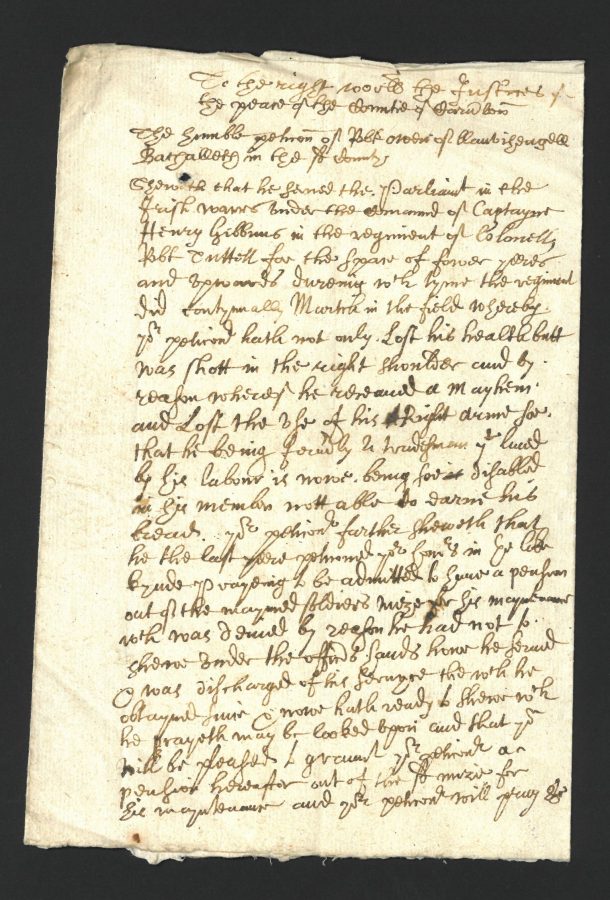 To the right wor:ll the Justices of
the peace of the Countie of
The humble peticon of Robt Owen of llanvihangell
Bachalleth in the sd County
Sheweth that he served the Parliamt in the
Irish warres under the comannd of Captayne
Henry Gibbons in the regiment of Colonell
Robt Tuttell for the space of fower yeres
and upwards dureing wch tyme the regiment
did contynually March in the field whereby
yor peticonr hath not only Lost his health butt
was shott in the right shoulder and by
reason whereof he receaved a Mayhem
and Lost the Use of his Right arme soe
that he being formerly a tradesman yt lived
by his labour is nowe being soe disabled
in his member nott able to earne his
bread. yor peticonr further sheweth that
he the last yere peticoned yor honrs in the like
kynde Prayeing to be admitted to have a pension
out of the maymed soldiers mize for his mayntenance
wch was denied by reason he had not to
shewe under the officrs hands howe he served
& was discharged of his servyce the wch he
obtayned since & nowe hath ready to shewe wch
he prayeth may be looked upon and that yee
will be pleased to graunt yor peticonr a
pension hereafter out of the sd mize for
his mayntenance and yor peticonr will pray &c